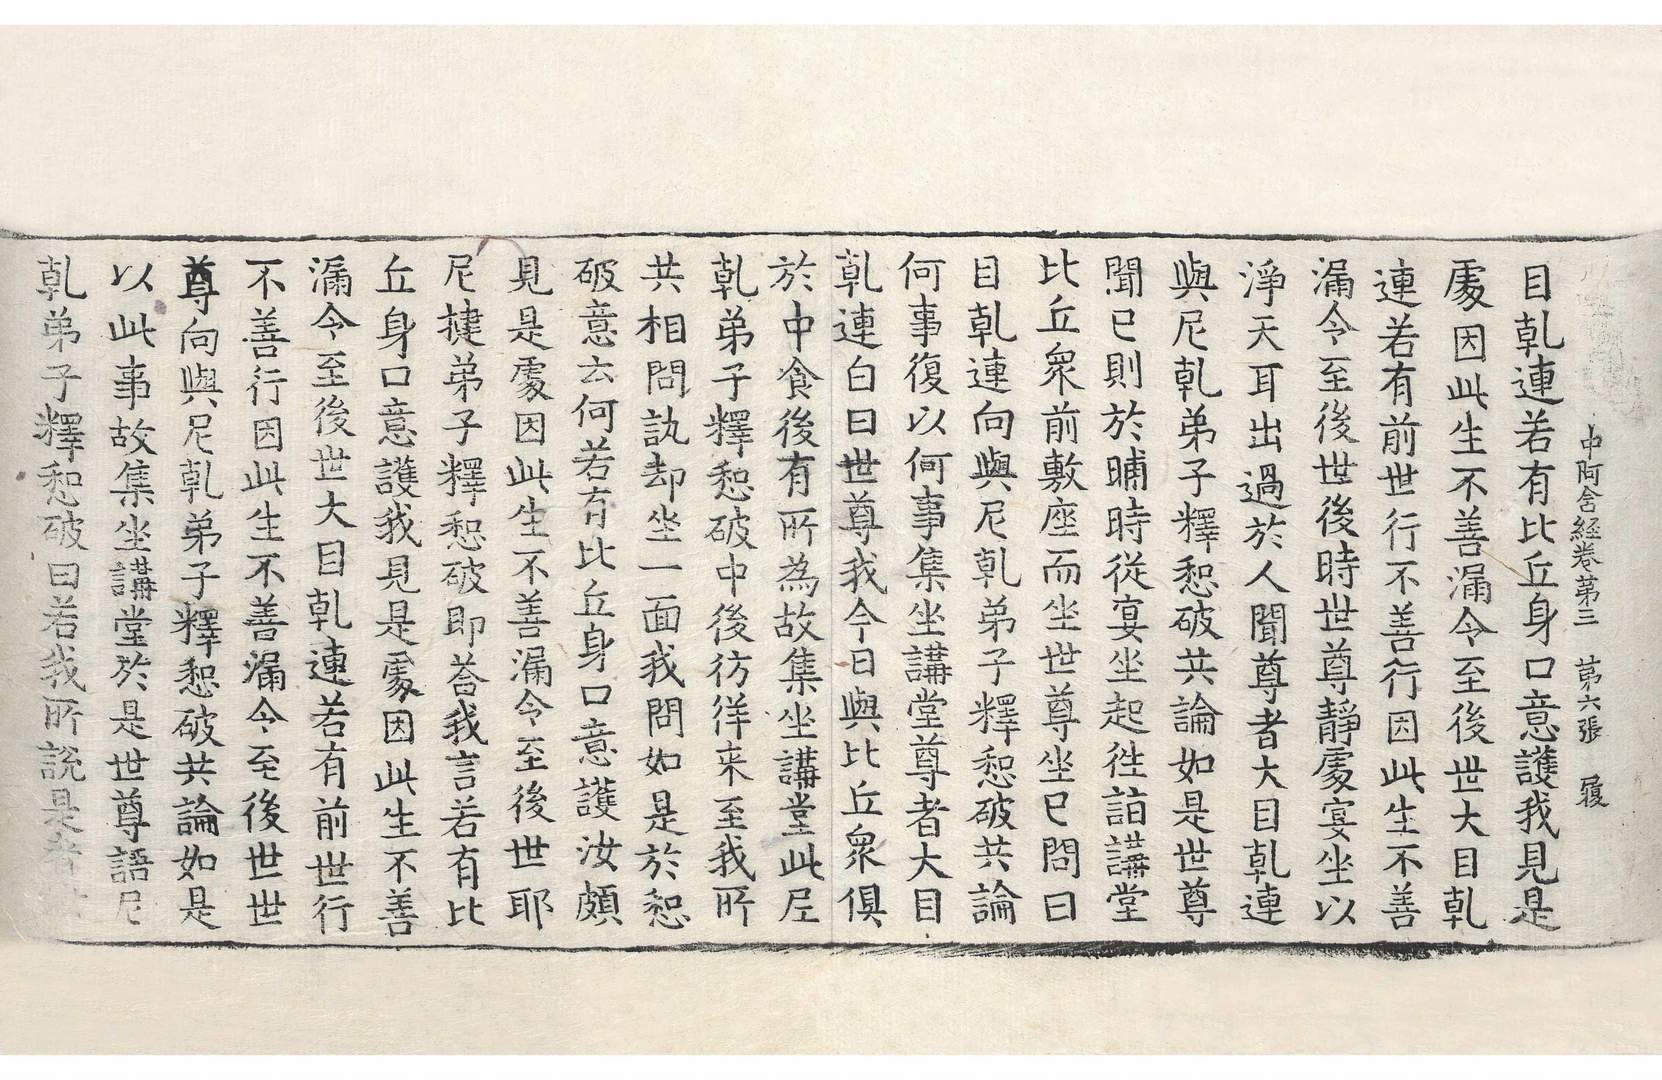 中阿含經卷第三　第六張　履
目乹連若有比丘身口意護我見是
處因此生不善漏令至後世大目乹
連若有前世行不善行因此生不善
漏令至後世後時世尊靜處宴坐以
淨天耳出過於人聞尊者大目乹連
與尼乹弟子釋惒破共論如是世尊
聞已則於晡時從宴坐起往詣講堂
比丘衆前敷座而坐世尊坐已問曰
目乹連向與尼乹弟子釋惒破共論
何事復以何事集坐講堂尊者大目
乹連白曰世尊我今日與比丘衆俱
於中食後有所為故集坐講堂此尼
乹弟子釋惒破中後彷徉来至我所
共相問訊却坐一面我問如是於惒
破意云何若有比丘身口意護汝頗
見是處因此生不善漏令至後世耶
尼揵弟子釋惒破即荅我言若有比
丘身口意護我見是處因此生不善
漏令至後世大目乹連若有前世行
不善行因此生不善漏令至後世世
尊向與尼乹弟子釋惒破共論如是
以此事故集坐講堂於是世尊語尼
乹弟子釋惒破曰若我所說是者